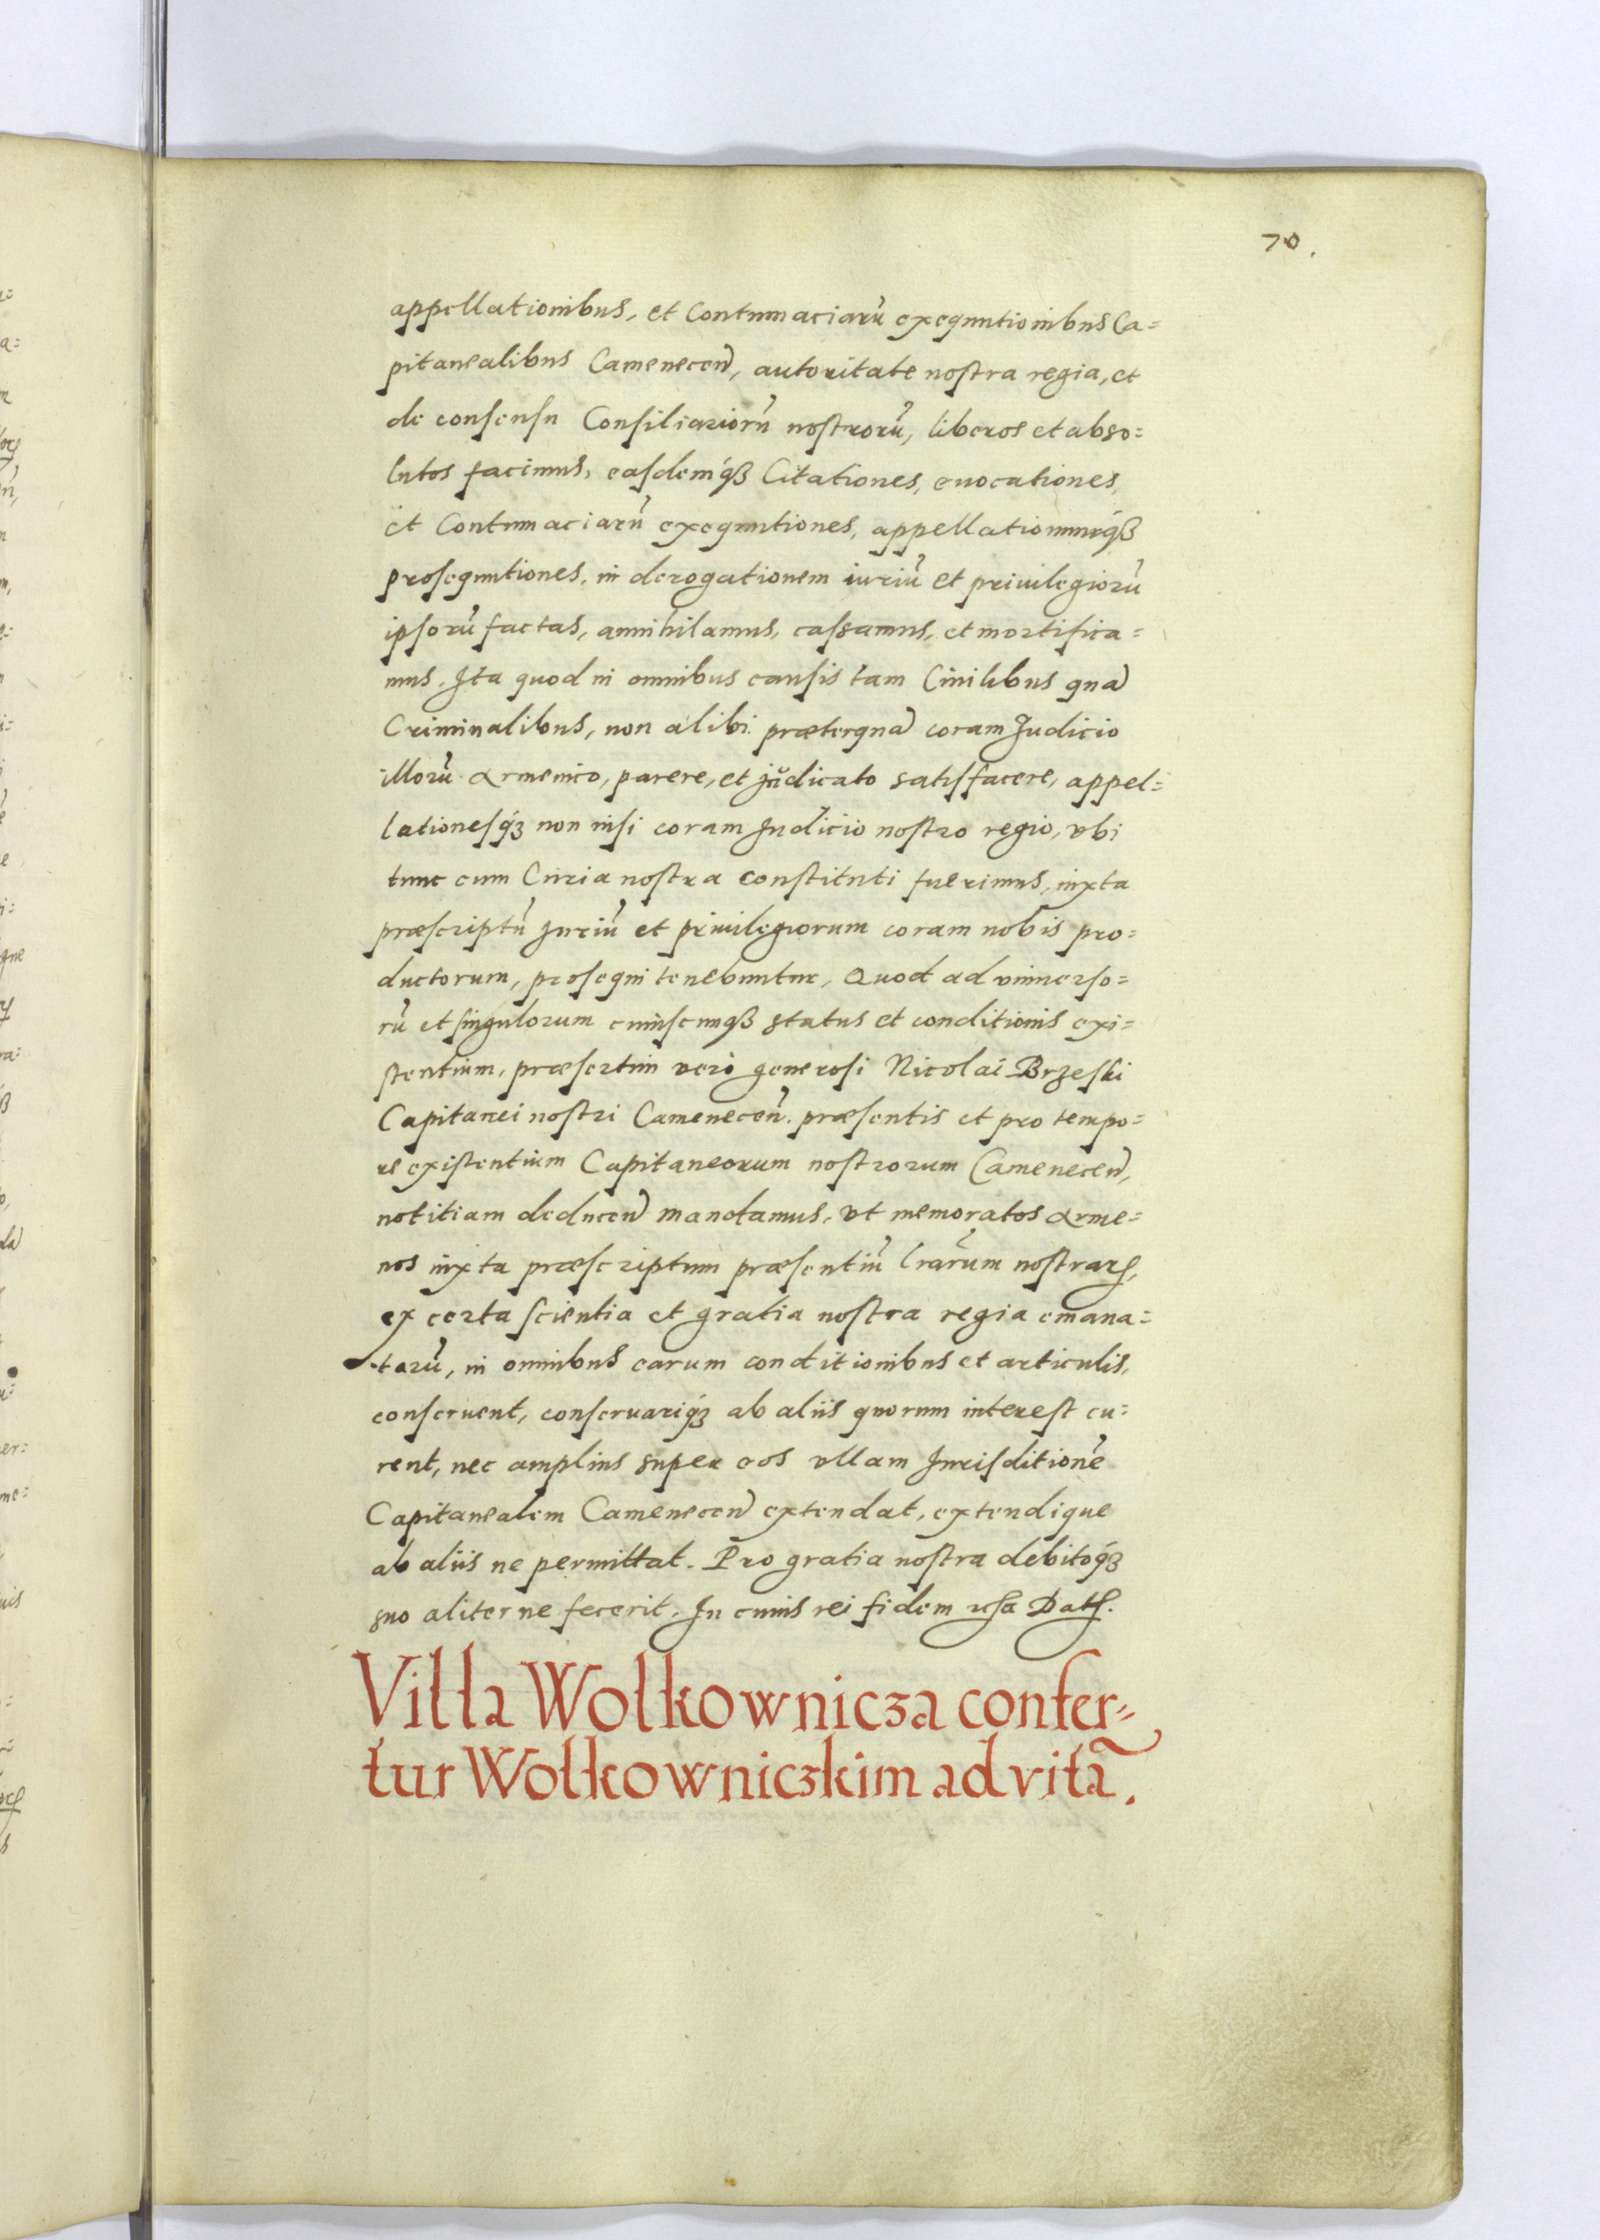 70.
appellationibus, et Contumaciarũ exequutionibus Ca=
pitanealibus Cameneceñ, autoritate nostra regia, et
de consensu Consiliariorũ nostrorũ, liberos et abso=
lutos facimus, easdemq́ꝫ Citationes, euocationes,
et Contumaciarũ exequutiones, appellationumq́ꝫ
prosequutiones, in derogationem iuriũ et priuilegiorũ
ipsorũ factas, annihilamus, cassamus, et mortifica=
mus. Ita quod in omnibus causis tam Ciuilibus quã
Criminalibus, non alibi præterquã coram Judicio
illorũ Armenico, parere, et judicato satisfacere, appel=
lationesq́ꝫ non nisi coram Judicio nostro regio, vbi
tunc cum Curia nostra constituti fuerimus, iuxta
præscriptũ Juriũ et priuilegiorum coram nobis pro=
ductorum, prosequi tenebuntur, Quod ad vniuerso=
rũ et singulorum cuiuscunqꝫ status et conditionis exi=
stentium, præsertim verò generosi Nicolai Brzeski
Capitanei nostri Cameneceñ. præsentis et pro tempo=
re existentium Capitaneorum nostrorum Cameneceñ,
notitiam deduceñ mandamus, vt memoratos Arme=
nos iuxta præscriptum præsentiũ lr̃arum nostrarꝝ,
ex certa scientia et gratia nostra regia emana=
tarũ, in omnibus earum conditionibus et articulis,
conseruent, conseruariq́ꝫ ab aliis quorum interest cu=
rent, nec amplius super eos vllam Jurisditionẽ
Capitanealem Cameneceñ extendat, extendique
ab aliis ne permittat. Pro gratia nostra debitoq́ꝫ
suo aliter ne fecerit. In cuius rei fidem Datꝭ.
Villa Wolkownicza confer=
tur Wolkowniczkim ad vitã.